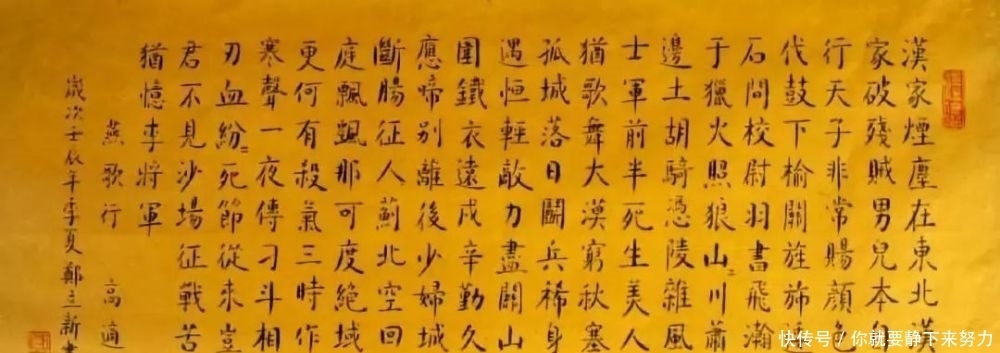 漢家煙塵在東北漢
家破殘賊男兒本
行天子非常賜顏色
代鼓下榆關旌旆
石間校尉羽書飛瀚
于獵火照狼山〻川蕭
邊土胡騎憑陵雜風
士軍前半死生美人
猶歌舞大漠窮秋塞
孤城落日鬬兵稀身
遇恒輕敵力盡關山
圍鐵衣遠戍辛勤久
應啼別離後少婦城
斷腸征人薊北空回
庭飄颻那可度絕域
更何有殺氣三時作
寒聲一夜傳刁斗相
刃血紛〻死節從來豈
君不見沙場征戰苦
猶憶李將軍
燕歌行 高適
歲次壬辰年季夏鄭立新
快传号 / 你就要静下来努力